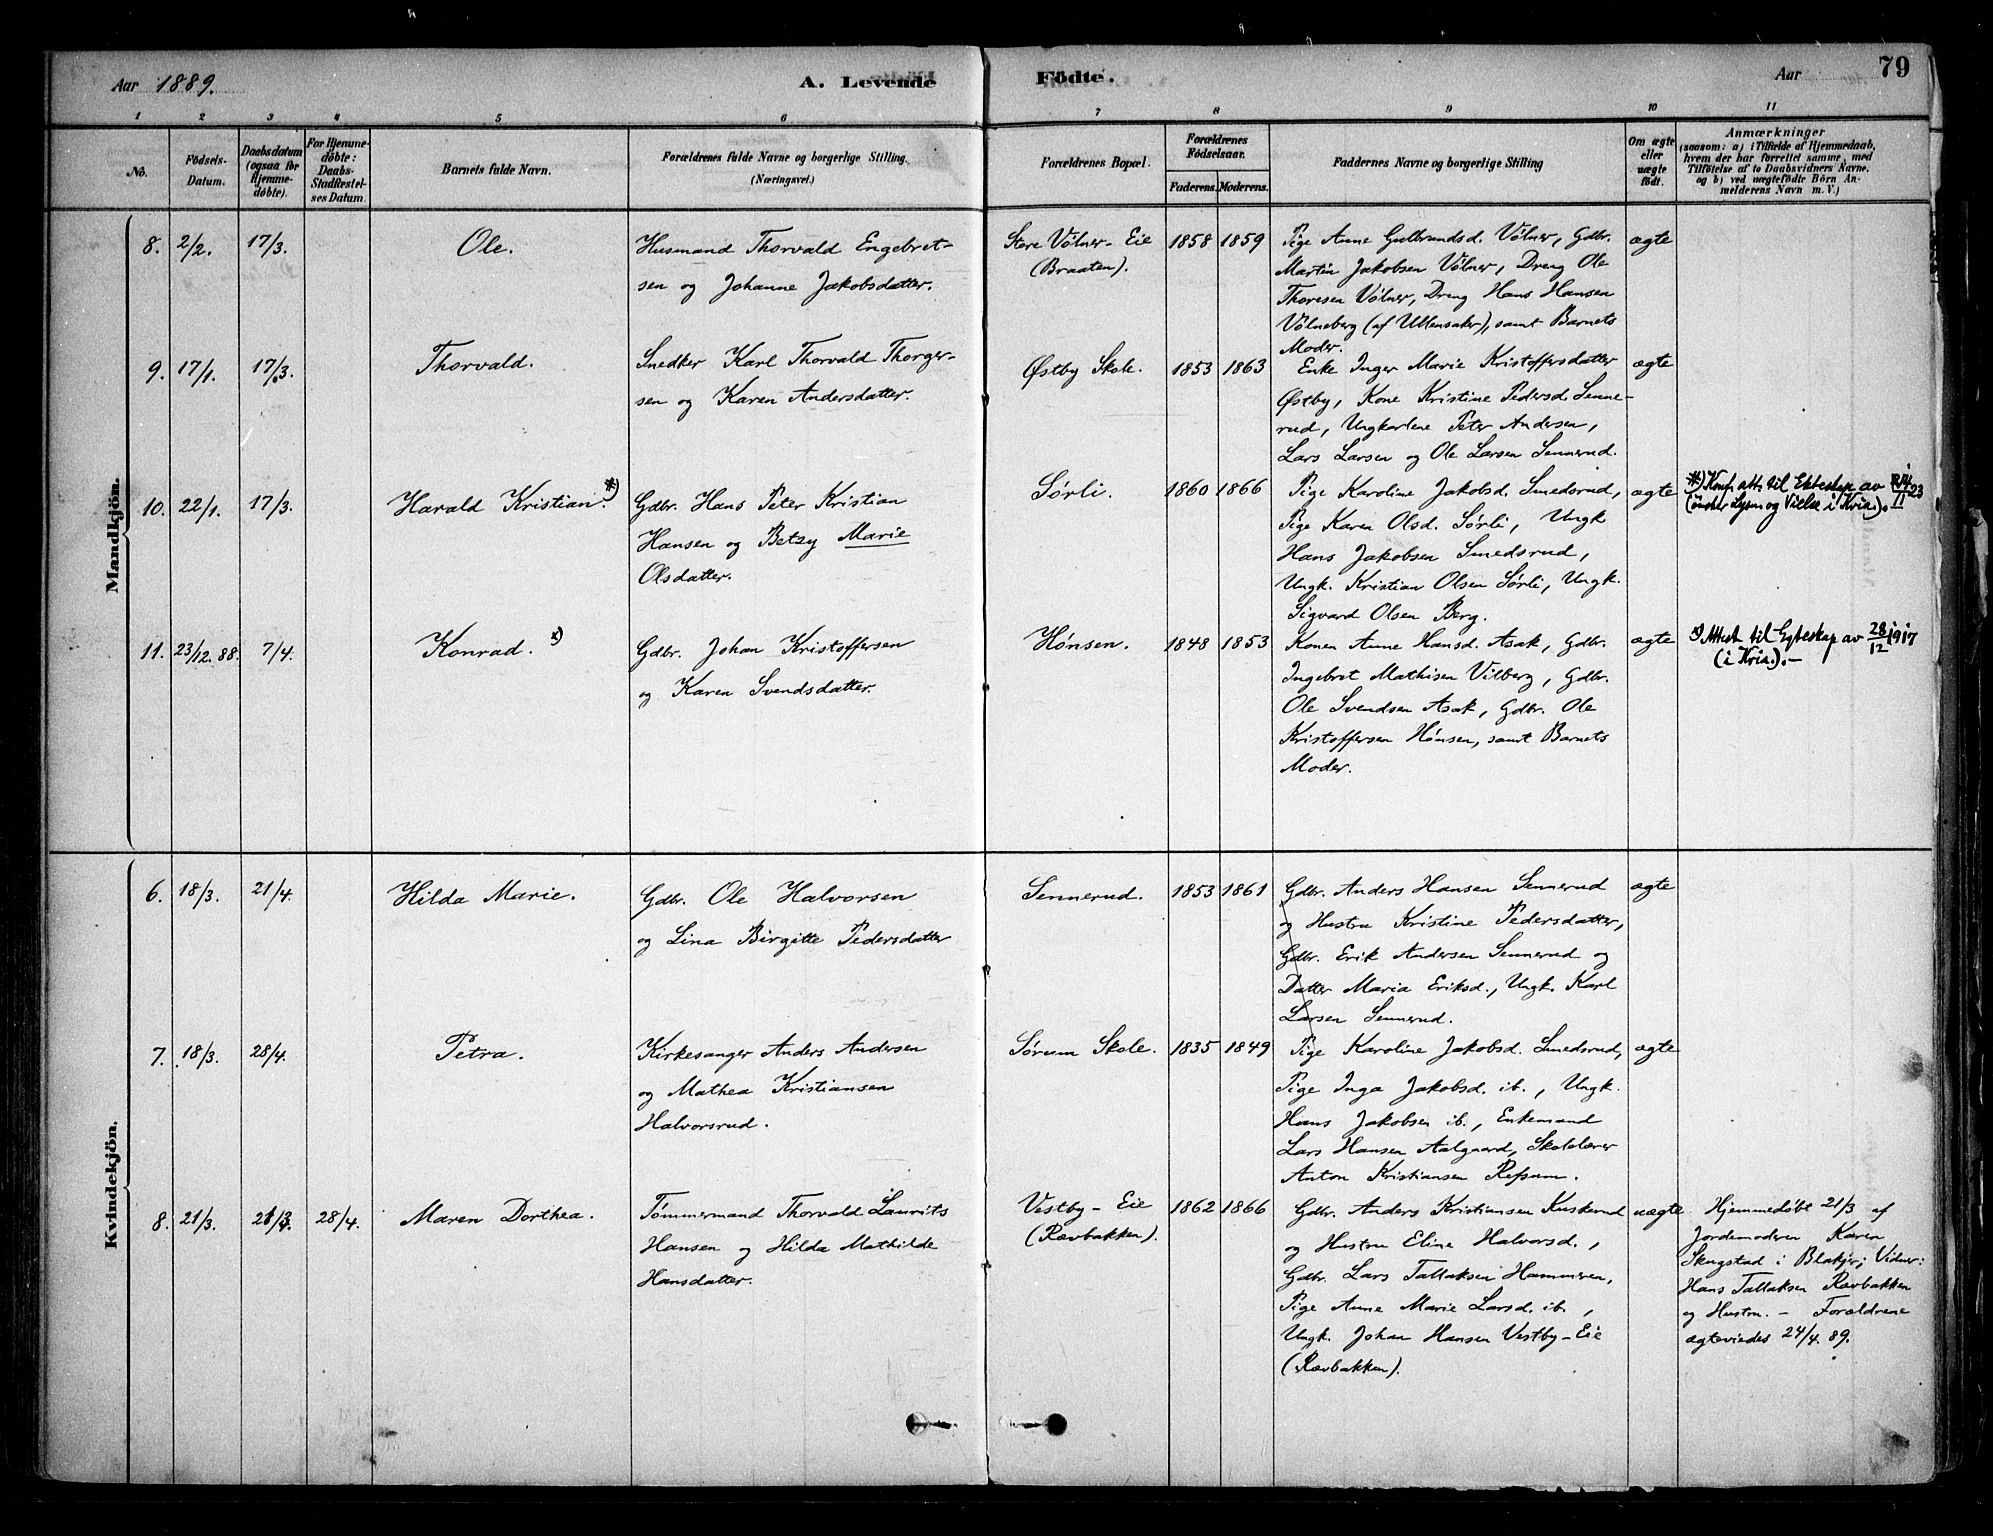 Aar 1889.
A. Levende Födte.
Aar
79
1 2 3 4 5 6 7 8 9 10 11
No.
Födsels-Datum.
Daabsdatum (ogsaa for Hjemme-döbte).
For Hjemme-döbte: Daabs-Stadfæstel-ses Datum.
Barnets fulde Navn.
Forældrenes fulde Navne og borgerlige Stilling.
(Næringsvei.)
Forældrenes Bopæl.
Forældrenes Födselsaar.
Faderens. Moderens.
Faddernes Navne og borgerlige Stilling
Om ægte eller uægte födt.
Anmærkninger
(saasom: a) i Tilfælde af Hjemmedaab,
hvem der har forrettet samme, med
Tilföielse af to Daabsvidners Navne,
og b) ved uægtefödte Börn An-
melderens Navn m. V.)
Mandkjön.
8. 2/2. 17/3. Ole.
Husmand Thorvald Engebret-
sen og Johanne Jakobsdatter.
Store Vølner-Eie
(Braaten).
1858 1859
Pige Anne Gulbrandsd. Vølner, Gdbr.
Martin Jakobsen Vølner, Dreng Ole
Thoresen Vølner, Dreng Hans Hansen
Vølneberg (af Ullensaker), samt Barnets
Moder.
ægte
9. 17/1. 17/3. Thorvald.
Snedker Karl Thorvald Thorger-
sen og Karen Andersdatter.
Østby Skole.
1853 1863
Enke Inger Marie Kristoffersdatter
Østby, Kone Kristine Pedersd. Senne-
rud, Ungkarlene Peter Andersen,
Lars Larsen og Ole Larsen Sennerud.
ægte
10. 22/1. 17/3. Harald Kristian. *)
Gdbr. Hans Peter Kristian
Hansen og Betzy Marie
Olsdatter.
Sørli.
1860 1866
Pige Karoline Jakobsd. Smedsrud,
Pige Karen Olsd. Sørli, Ungk
Hans Jakobsen Smedsrud,
Ungk. Kristian Olsen Sørli, Ungk.
Sigvard Olsen Berg.
ægte
*) Konf. att. til Ekteskap av 23
(ønsker Lysn. og Vielse i Kria.).
11. 23/12. 88. 7/4. Konrad. *)
Gdbr. Johan Kristoffersen
og Karen Svendsdatter.
Hønsen.
1848 1853
Konen Anne Hansd. Asak, Gdbr.
Ingebret Mathisen Vilberg, Gdbr.
Ole Svendsen Asak, Gdbr. Ole
Kristoffersen Hønsen, samt Barnets
Moder.
ægte
*) Attest til Egteskap av 28/12 1917
(i Kria.).-
Kvindekjön.
6. 18/3. 21/4. Hilda Marie.
Gdbr. Ole Halvorsen
og Lina Birgitte Pedersdatter
Sennerud.
1853 1861
Gdbr. Anders Hansen Sennerud
og Hustru Kristine Pedersdatter,
Gdbr. Erik Andersen Sennerud og
Datter Maria Eriksd., Ungk. Karl
Larsen Sennerud.
ægte
7. 18/3. 28/4. Petra.
Kirkesanger Anders Andersen
og Mathea Kristiansen
Halvorsrud.
Sørum Skole.
1835 1849
Pige Karoline Jakobsd. Smedsrud,
Pige Inga Jakobsd. ib., Ungk.
Hans Jakobsen ib., Enkemand
Lars Hansen Aalgaard, Skolelærer
Anton Kristiansen Refsum.
ægte
8. 21/3. 21/3. 28/4. Maren Dorthea.
Tømmermand Thorvald Laurits
Hansen og Hilda Mathilde
Hansdatter.
Vestby-Eie
(Rævbakken).
1862 1866
Gdbr. Anders Kristiansen Kuskerud
og Hustru Eline Halvorsd.,
Gdbr. Lars Tallaksen Hammeren,
Pige Anne Marie Larsd. ib.,
Ungk. Johan Hansen Vestby-Eie
(Rævbakken).
uægte
Hjemmedøbt 21/3 af
Jordemoderen Karen
Skogstad i Blakjer; Vidner:
Hans Tallaksen Rævbakken
og Hustru. - Forældrene
ægteviedes 24/4. 89.